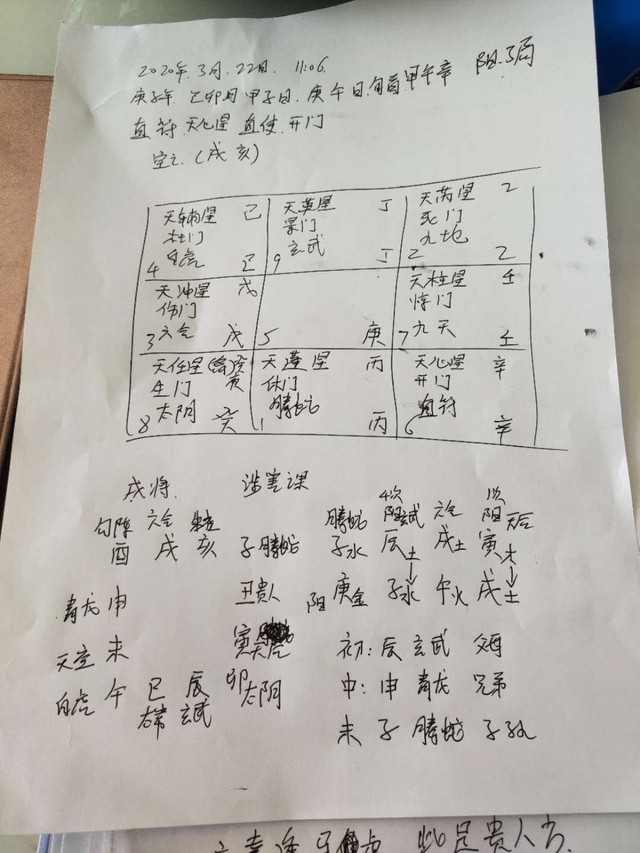 2020年.3月.22日. 11:06.
庚子年. 乙卯月 甲子日. 庚午日.旬首甲午辛 阳.3局
直符.天心星 直使.开门
空亡.(戌亥)
天辅星 己 天英星 丁 天芮星 乙
杜门 景门 死门
白虎 玄武 九地
4 己 9 丁 2 乙
天冲星 戊 天柱星 壬
伤门 惊门
3 六合 戊 5 庚 7 九天 壬
天任星 天蓬星 丙 天心星 辛
生门 休门 开门
太阴 腾蛇 直符
8 癸 1 丙 6 辛
戌将. 涉害课
勾陈 六合 朱雀 腾蛇 4次 阻 玄武 六合 1次 阻 天后
酉 戌 亥 子腾蛇 子水 辰土 戌土 寅木
青龙 申 丑贵人 阻 庚金 子水 午火 戌土
天空 未 寅天后 初:辰 玄武 父母
白虎 午 巳 辰 卯太阴 中:申 青龙 兄弟
太常 玄武 末 子 腾蛇 子孙